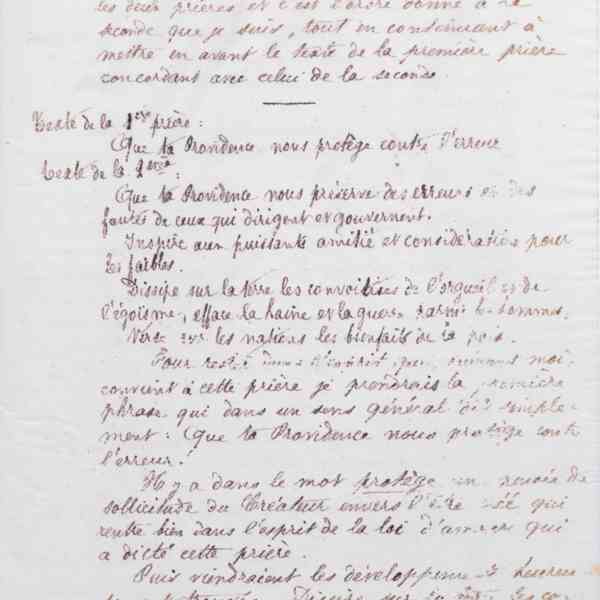 les deux prières et c'est l'ordre donné à la
seconde que je suis, tout en continuant à
mettre en avant le texte de la première prière
concordant avec celui de la seconde.
Texte de la 1ère prière :
Que ta Providence nous protège contre l'erreur
Texte de la 2ème :
Que ta Providence nous préserve des erreurs et des
fautes de ceux qui dirigent et gouvernent.
Inspire aux puissants amitié et considération pour
les faibles.
Dissipe sur la terre les convoitises de l'orgueil et de
l'égoïsme, efface la haine et la guerre parmi les hommes.
Verse sur les nations les bienfaits de la paix.
Pour rester dans l'esprit
convient à cette prière je prendrais la première
phrase qui dans un sens général dit simple-
ment : Que ta Providence nous protège contre
l'erreur.
Il y a dans le mot protège une pensée de
sollicitude du Créateur envers l'être créé qui
rentre bien dans l'esprit de la loi d'amour qui
a dicté cette prière.
Puis viendraient les développements heureux
Dissipe sur la